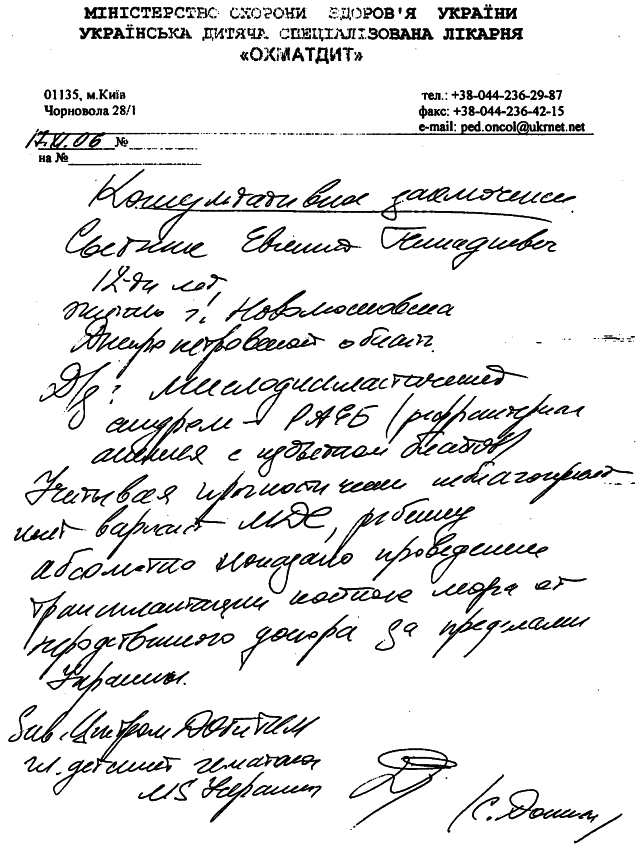 МІНІСТЕРСТВО ОХОРОНИ ЗДОРОВ'Я УКРАЇНИ
УКРАЇНСЬКА ДИТЯЧА СПЕЦІАЛІЗОВАНА ЛІКАРНЯ
«ОХМАТДИТ»
01135, м.Київ
Чорновола 28/1
тел.: +38-044-236-29-87
факс: +38-044-236-42-15
e-mail: ped.oncol@ukrnet.net
17.XI.06 №
на №
Консультативное заключение
Евгений Геннадиевич
12-ти лет
житель г. Новомосковска
Днепропетровской област.
Д/з: Миелодиспластический
синдром – РАЕБ (рефрактерная
анемия с избытком бластов)
Учитывая прогностически неблагоприят
ный вариант МДС, ребенку
абсолютно показано проведение
трансплантации костного мозга от
неродственного донора за пределами
Украины.
Зав. Центром
гл. детский гематолог
МЗ Украины